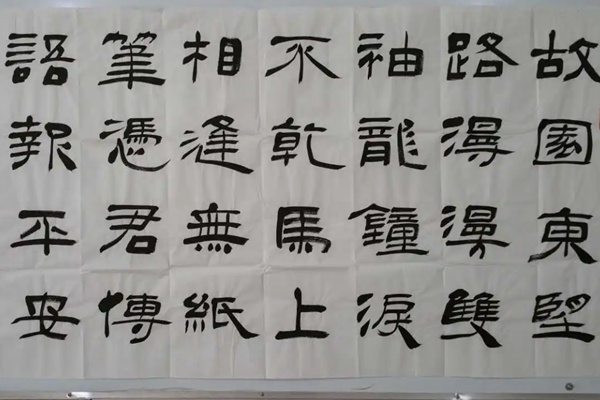 故園東望
路漫漫雙
袖龍鐘淚
不乾馬上
相逢無紙
筆憑君傳
語報平安